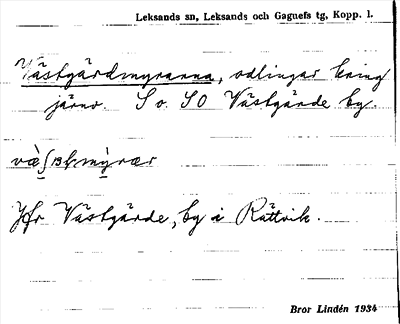 Leksands sn, Leksands och Gagnefs tg, Kopp. l.
Västgärdmyrarna, odlingar kring
järnv. S o. SO Västgärde by.
Jfr Västgärde, by i Rättvik.
Bror Lindén 1934